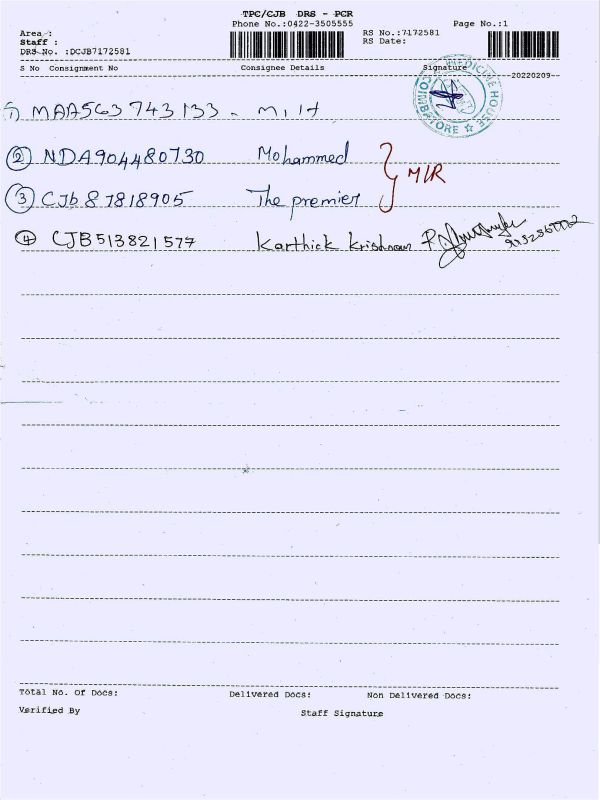 TPC/CJB DRS - PCR
Phone No.:0422-3505555
Page No.:1
Area :
Staff :
DRS No. :DCJB7172581
RS No.:7172581
RS Date:
S No Consignment No Consignee Details Signature
20220209
MEDICINE HOUSE
COIMBATORE
1) MAA563743133 - M, H
2 NDA904480730 Mohammed
3 CJb87818905 The premier
M/R
4 CJB513821577 Karthick Krishnan
Total No. Of Docs: Delivered Docs: Non Delivered Docs:
Verified By Staff Signature